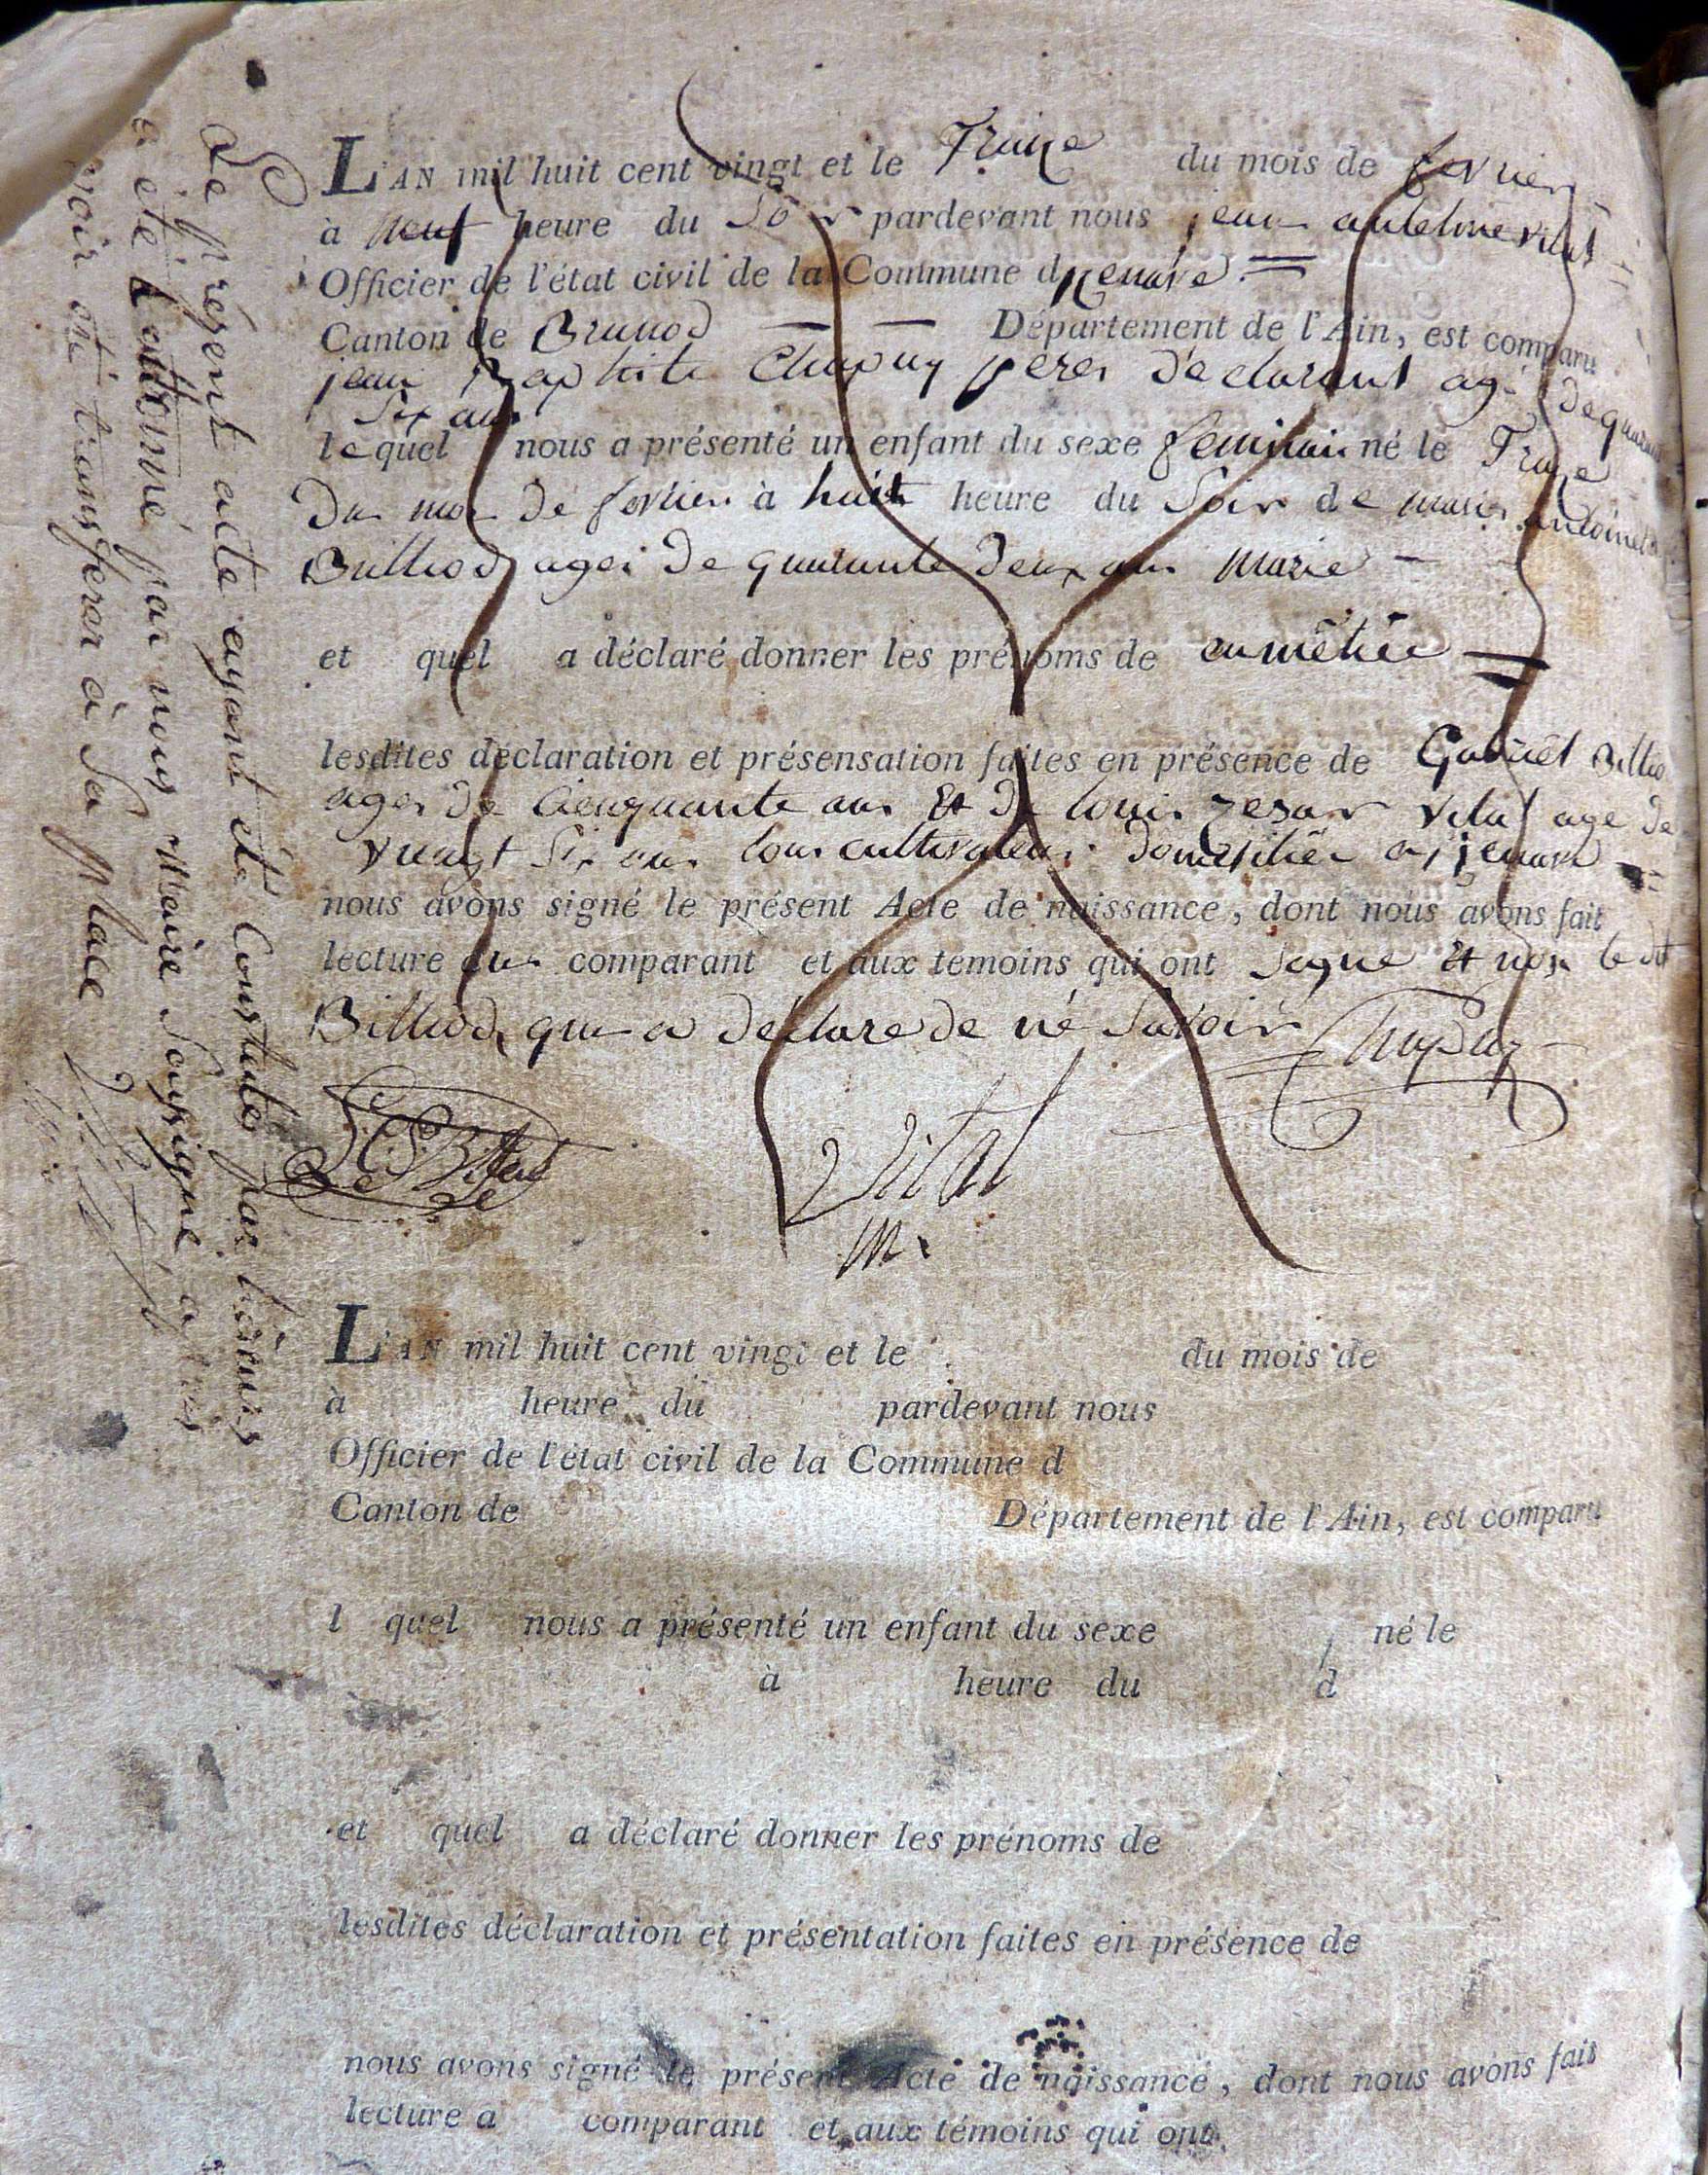 L'AN mil huit cent vingt et le Traize du mois de fevrier
à neuf heure du Soir pardevant nous jean antelme vital
Officier de l'état civil de la Commune d
Canton de Brenod Département de l'Ain, est comparu
jean Baptiste Chapuy pere declarant agé de quarante
Six ans
lequel nous a présenté un enfant du sexe feminain né le Traize
Du mois De fevrier à huit heure du Soir de marie antoinette
Billiod agée De quarante Deux ans Marie
et quel a déclaré donner les prénoms de
lesdites déclaration et présensation faites en présence de Gabriel Billiod
agé De Cienquante ans Et De louis Vital age De
vuingt Six ans tous cultivateur
nous avons signé le présent Acte de naissance, dont nous avons fait
lecture au comparant et aux temoins qui ont Signé Et non le dit
Billiod que a déclaré de né Savoir Chapuy
Vital
m.
Le présent acte ayant été
a été par nous Maire Soussigné
été transferer à Sa place
L'AN mil huit cent vingt et le du mois de
à heure du pardevant nous
Officier de l'état civil de la Commune d
Canton de Département de l'Ain, est comparu
l quel nous a présenté un enfant du sexe né le
à heure du d
et quel a déclaré donner les prénoms de
lesdites déclaration et présentation faites en présence de
nous avons signé le présent Acte de naissance, dont nous avons fait
lecture a comparant et aux témoins qui ont